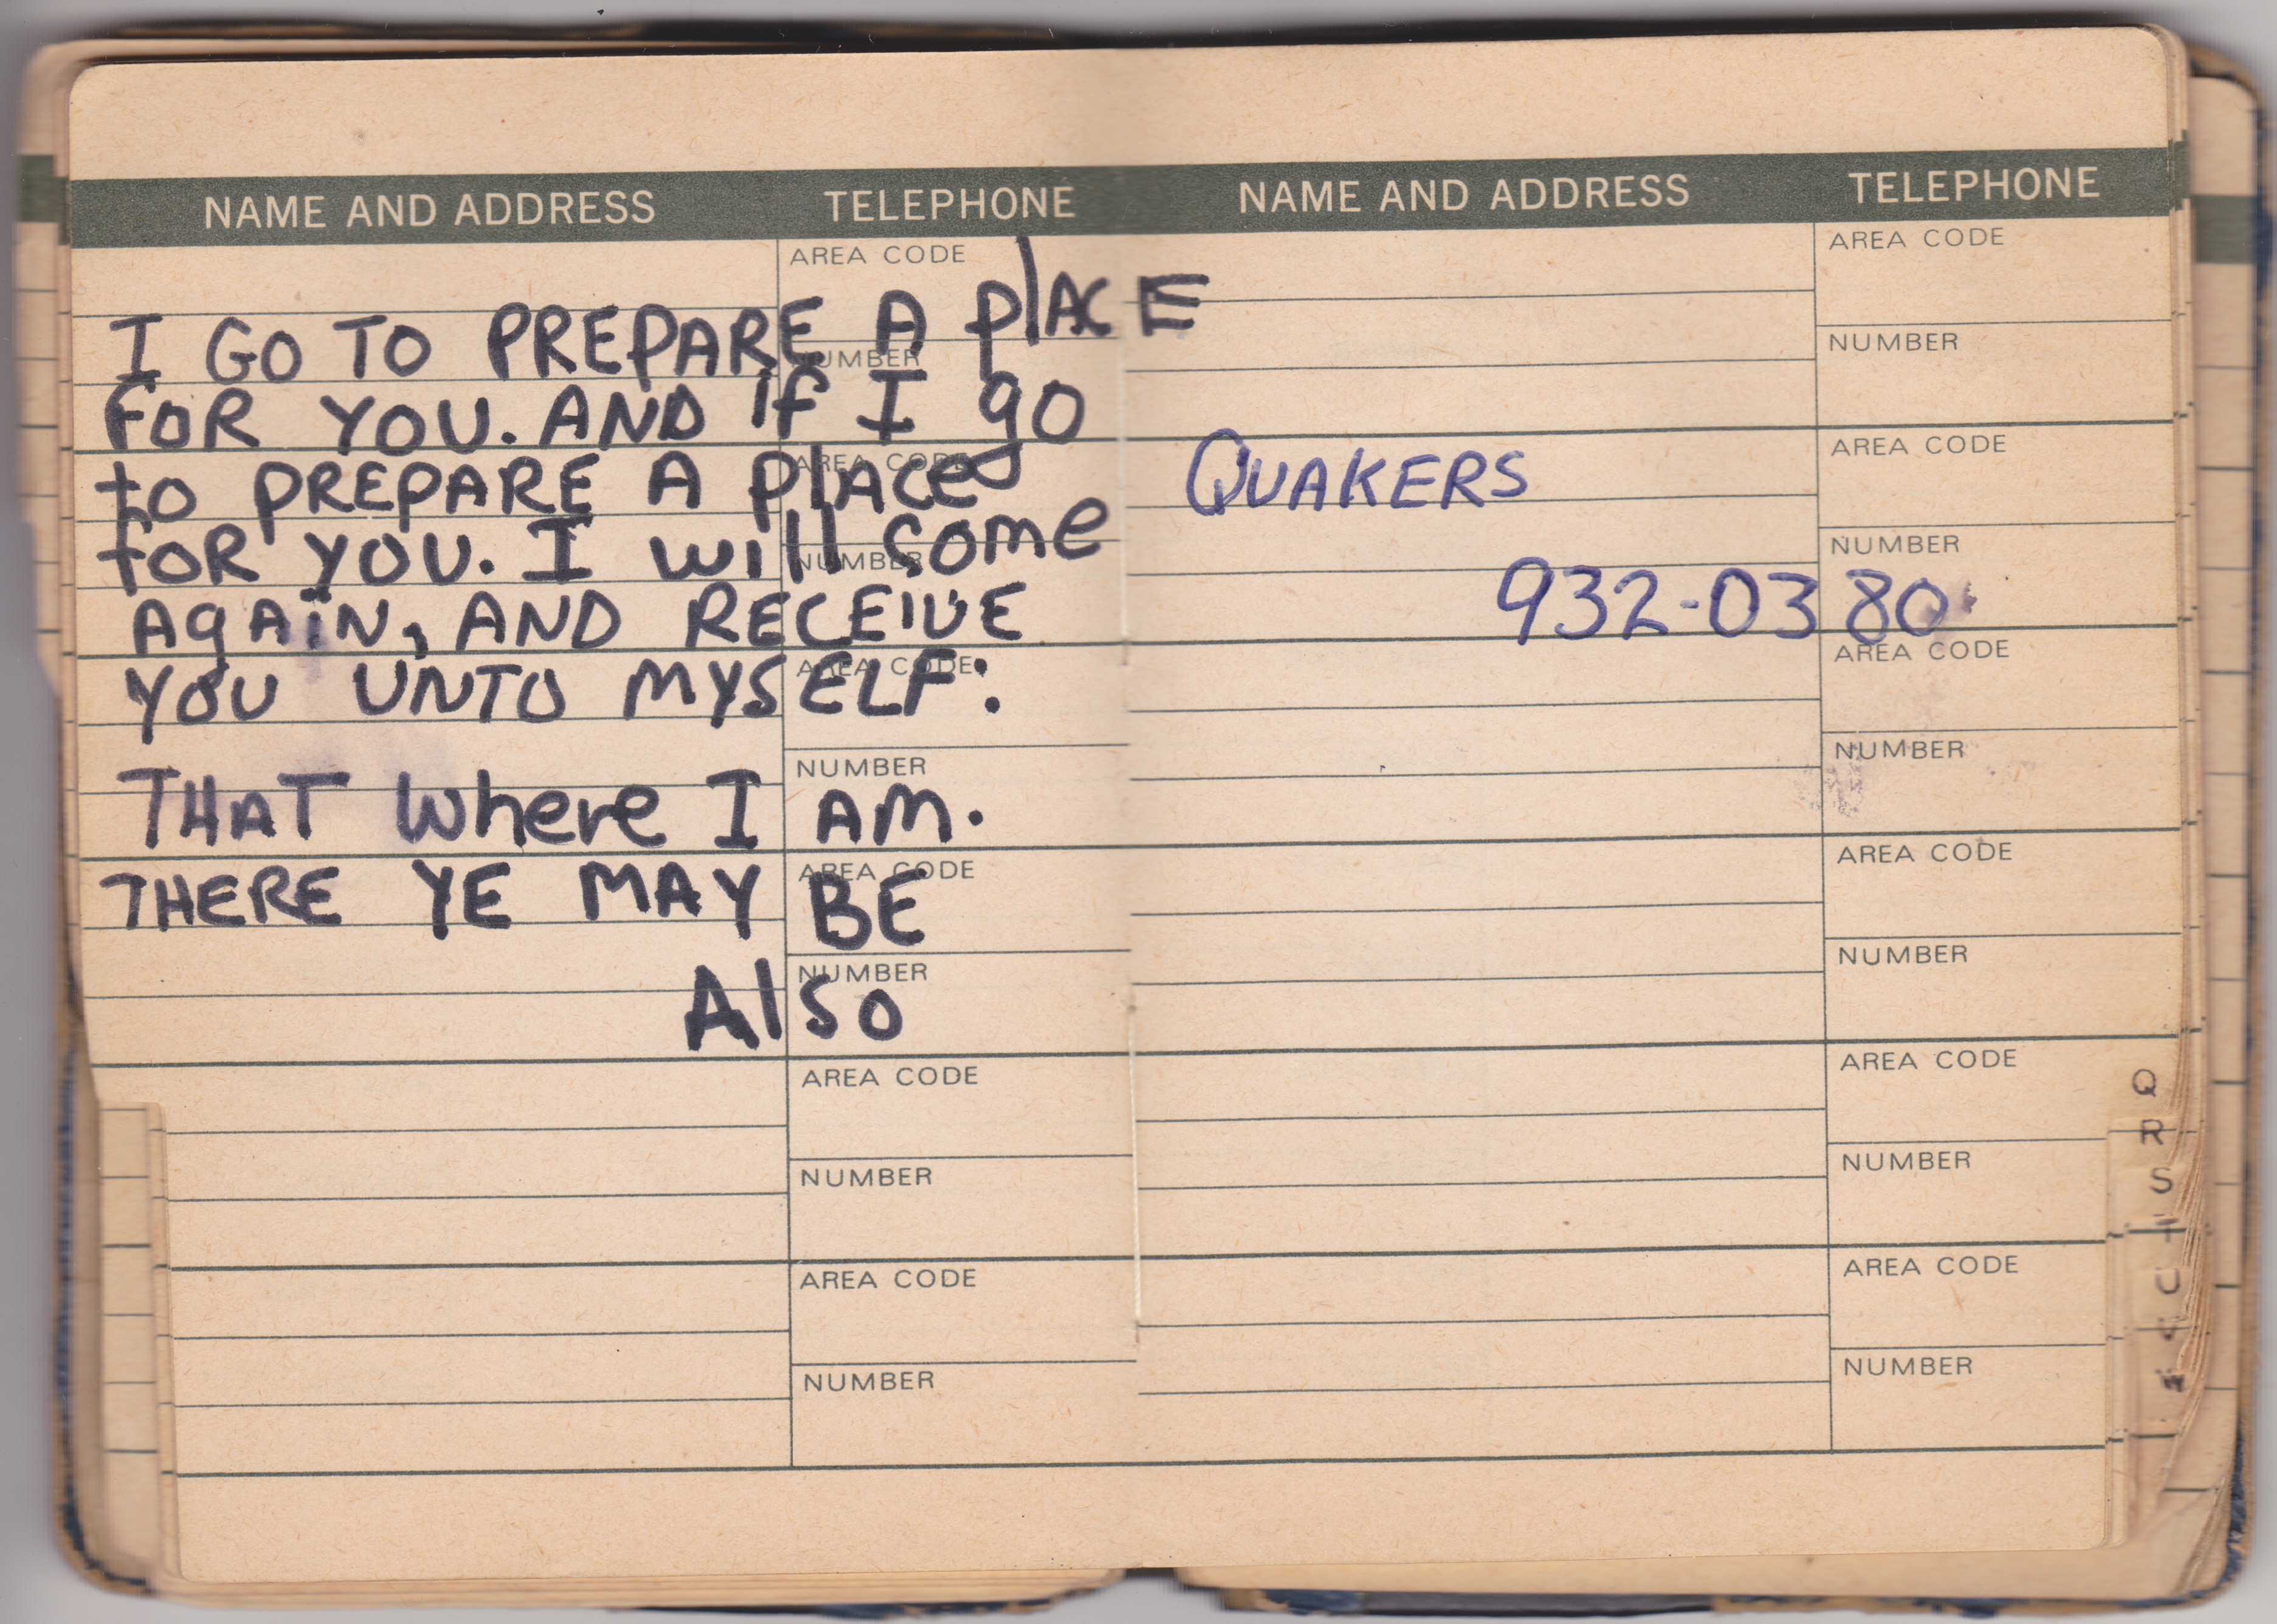 NAME AND ADDRESS TELEPHONE
AREA CODE
I GO TO PREPARE A PlACE
NUMBER
FOR YOU. AND if I go
AREA CODE
to PREPARE A place
FOR YOU. I will come
NUMBER
AgAiN, AND RECEIVE
AREA CODE
YOU UNTO MYSELF:
NUMBER
THAT where I AM.
AREA CODE
THERE YE MAY BE
NUMBER
Also
AREA CODE
NUMBER
AREA CODE
NUMBER
NAME AND ADDRESS TELEPHONE
AREA CODE
NUMBER
AREA CODE
QUAKERS
NUMBER
932-0380
AREA CODE
NUMBER
AREA CODE
NUMBER
AREA CODE
NUMBER
AREA CODE
NUMBER
Q
R
S
T
U
V